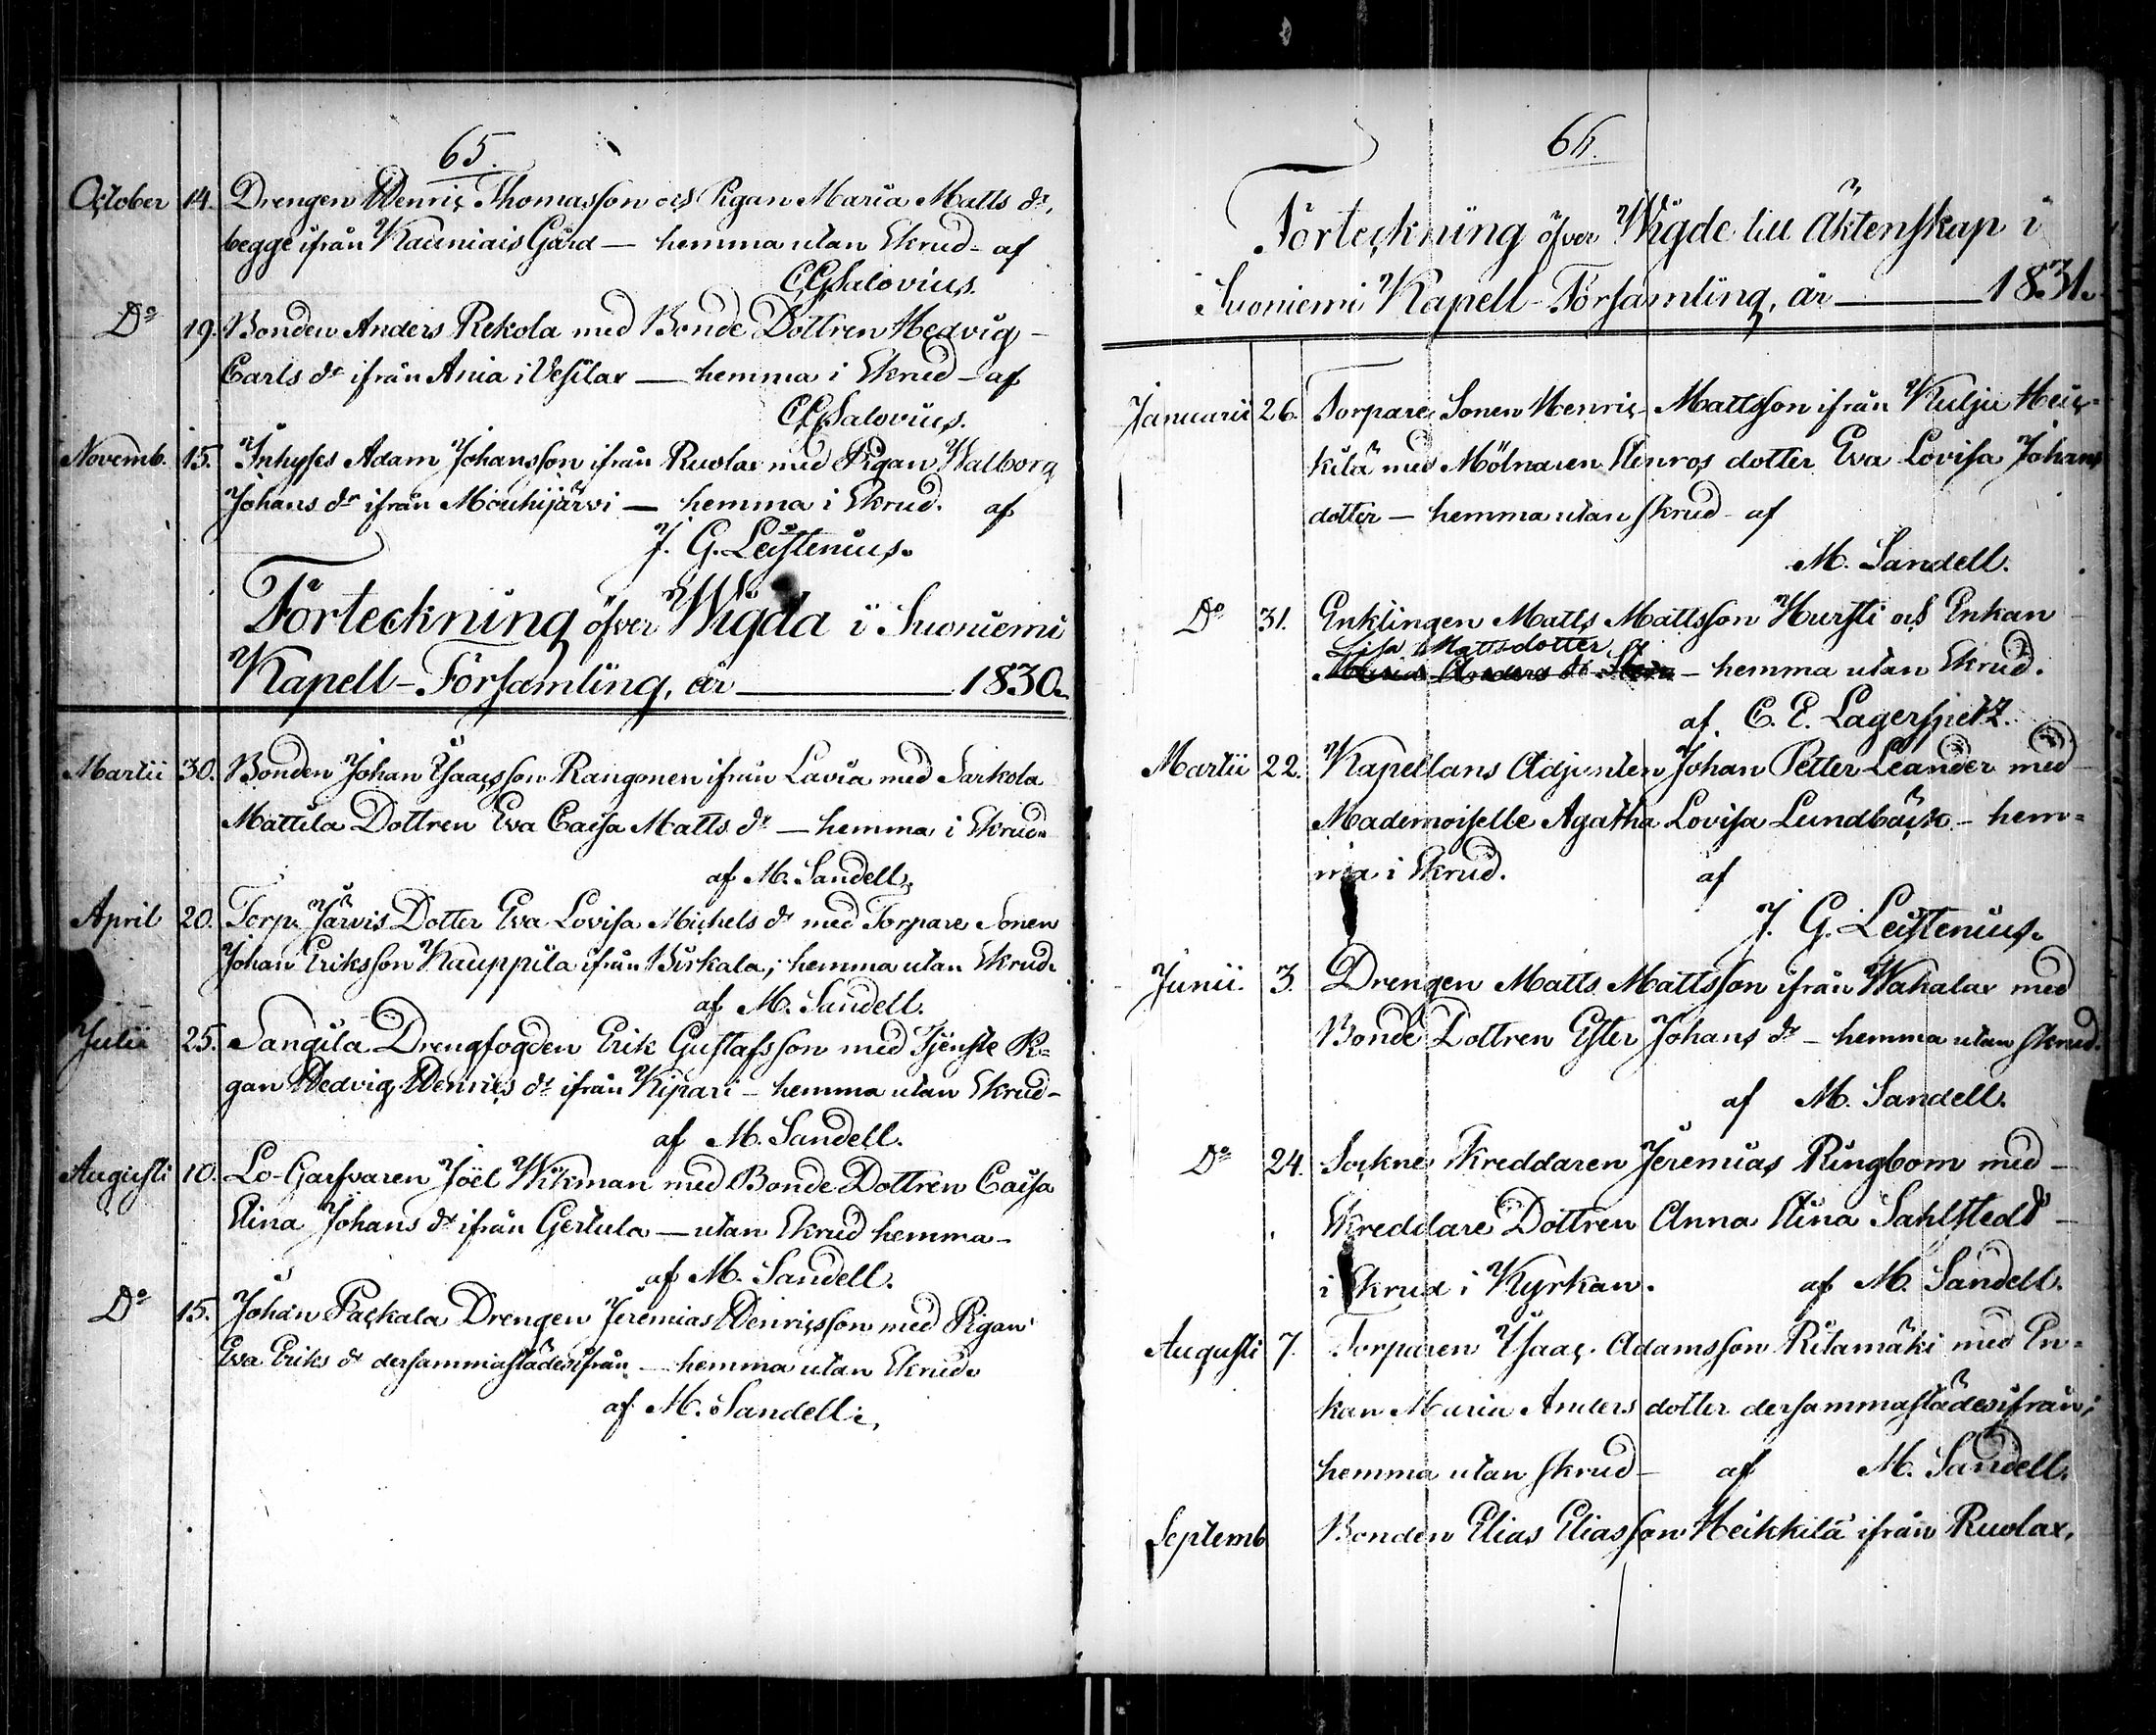 65.
October 14. Drengen Henric Thomasson och Pigan Maria Matts dr,
begge ifrån Kauniais Gård — hemma utan Skrud - af
C G Salovius.
Do 19. Bonden Anders Rekola med Bonde Dottren Hedvig -
Carls dr ifrån Ania i Vesilax — hemma i Skrud - af
C G Salovius.
Novemb. 15. Inhyses Adam Johansson ifrån Ruolax med Pigan Walborg
Johans dr ifrån Mouhijärvi — hemma i Skrud. af
J. G. Leistenius.
Förteckning öfver Wigda i Suoniemi
Kapell-Församling, år — 1830.
Martii 30. Bonden Johan Isaacsson Rangonen ifrån Lavia med Sarkola
Mattila Dottren Eva Caisa Matts dr — hemma i Skrud.
af M. Sandell.
April 20. Torp. Järvis Dotter Eva Lovisa Michels dr med Torpare Sonen
Johan Eriksson Kauppila ifrån Birkala, hemma utan Skrud.
af M. Sandell.
Julii 25. Sangila Drengfogden Erik Gustafsson med Tjenste Pi=
gan Hedvig Henrics dr ifrån Kipari - hemma utan Skrud -
af M. Sandell.
Augusti 10. Lo-Garfvaren Joël Wikman med Bonde Dottren Caisa
Stina Johans dr ifrån Gertula — utan Skrud hemma -
af M. Sandell.
Do 15. Johan Packala Drengen Jeremias Henricsson med Pigan
Eva Eriks dr dersammastädesifrån — hemma utan Skrud.
af M. Sandell.
66.
Förteckning öfver Wigde till Äktenskap i
Suoniemi Kapell-Församling, år — 1831.
Januarii 26. Torpare Sonen Henric Mattsson ifrån Kulju Heic=
kilä med Mölnaren Stenros dotter Eva Lovisa Johans
dotter — hemma utan skrud - af
M. Sandell.
Do 31. Enklingen Matts Mattsson Hursti och Enkan
Lisa Mattsdotter
Maria Anders dr — hemma utan Skrud.
af C. E. Lagerspetz.
Martii 22. Kapellans Adjunten Johan Petter Leander med
Mademoiselle Agatha Lovisa Lundbäck - hem=
ma i Skrud. af
J. G. Leistenius.
Junii 3. Drengen Matts Mattsson ifrån Wakalax med
Bonde Dottren Ester Johans dr - hemma utan skrud.
af M. Sandell.
Do 24. Sockne Skreddaren Jeremias Ringbom med -
Skreddare Dottren Anna Stina Sahlstedt -
i Skrud i Kyrkan. af M. Sandell.
Augusti 7. Torparen Isaac Adamsson Ritamäki med En=
kan Maria Anders dotter dersammastädesifrån;
hemma utan skrud - af M. Sandell.
Septemb Bonden Elias Eliasson Heikkilä ifrån Ruolax,